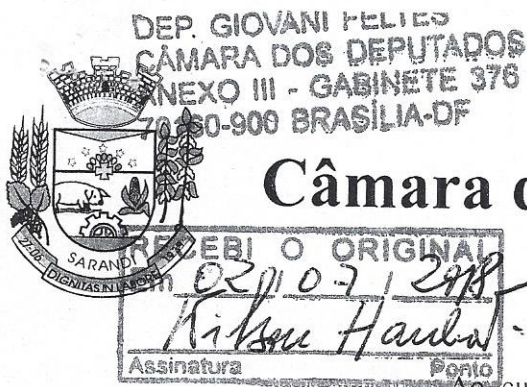 DEP. GIOVANI FELTES
CÂMARA DOS DEPUTADOS
ANEXO III - GABINETE 376
70160-900 BRASÍLIA-DF
Câmara
SARANDI
DIGNITAS IN LABORE
RECEBI O ORIGINAL
Em 02 / 07 / 2018
Assinatura Ponto